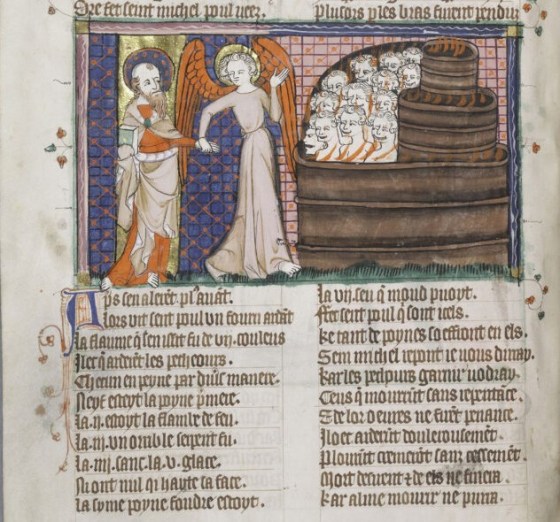 Ore set seint michel poul veez.
Plusors ples bras furent pendu
Aps sen alerēt pl'auāt.
Alors vit seint poul vn fourn ardāt
La flaume q̄ sen issit fu de vij. couleurs
Ilec q̄ ardēt les pecheours.
Checun en peyne par diuse manere.
Neyf estoyt la peyne p̄mere.
La .ij. estoyt la flambe de feu.
La .iij. vn orrible serpent fu.
La .iiij. sanc. la .v. glace.
ont nul qi hayte sa face.
La syme peyne foudre estoyt.
La vij. seu q̄ moud puoyt.
seint poul q̄ sont icels.
Ke tant de peynes soeffront en els.
Seīn michel repont ie vous diray.
Kar les pecheurs garnir vodray.
Ceus q̄ mourrūt sanz repentāce.
E de lor oeures ne fūrt penance.
Iloec arderūt doulerousemēt.
Plourūt crieront sanz cessemēt.
Mort desirent & de els ne finera.
Kar alme mourir ne purra.